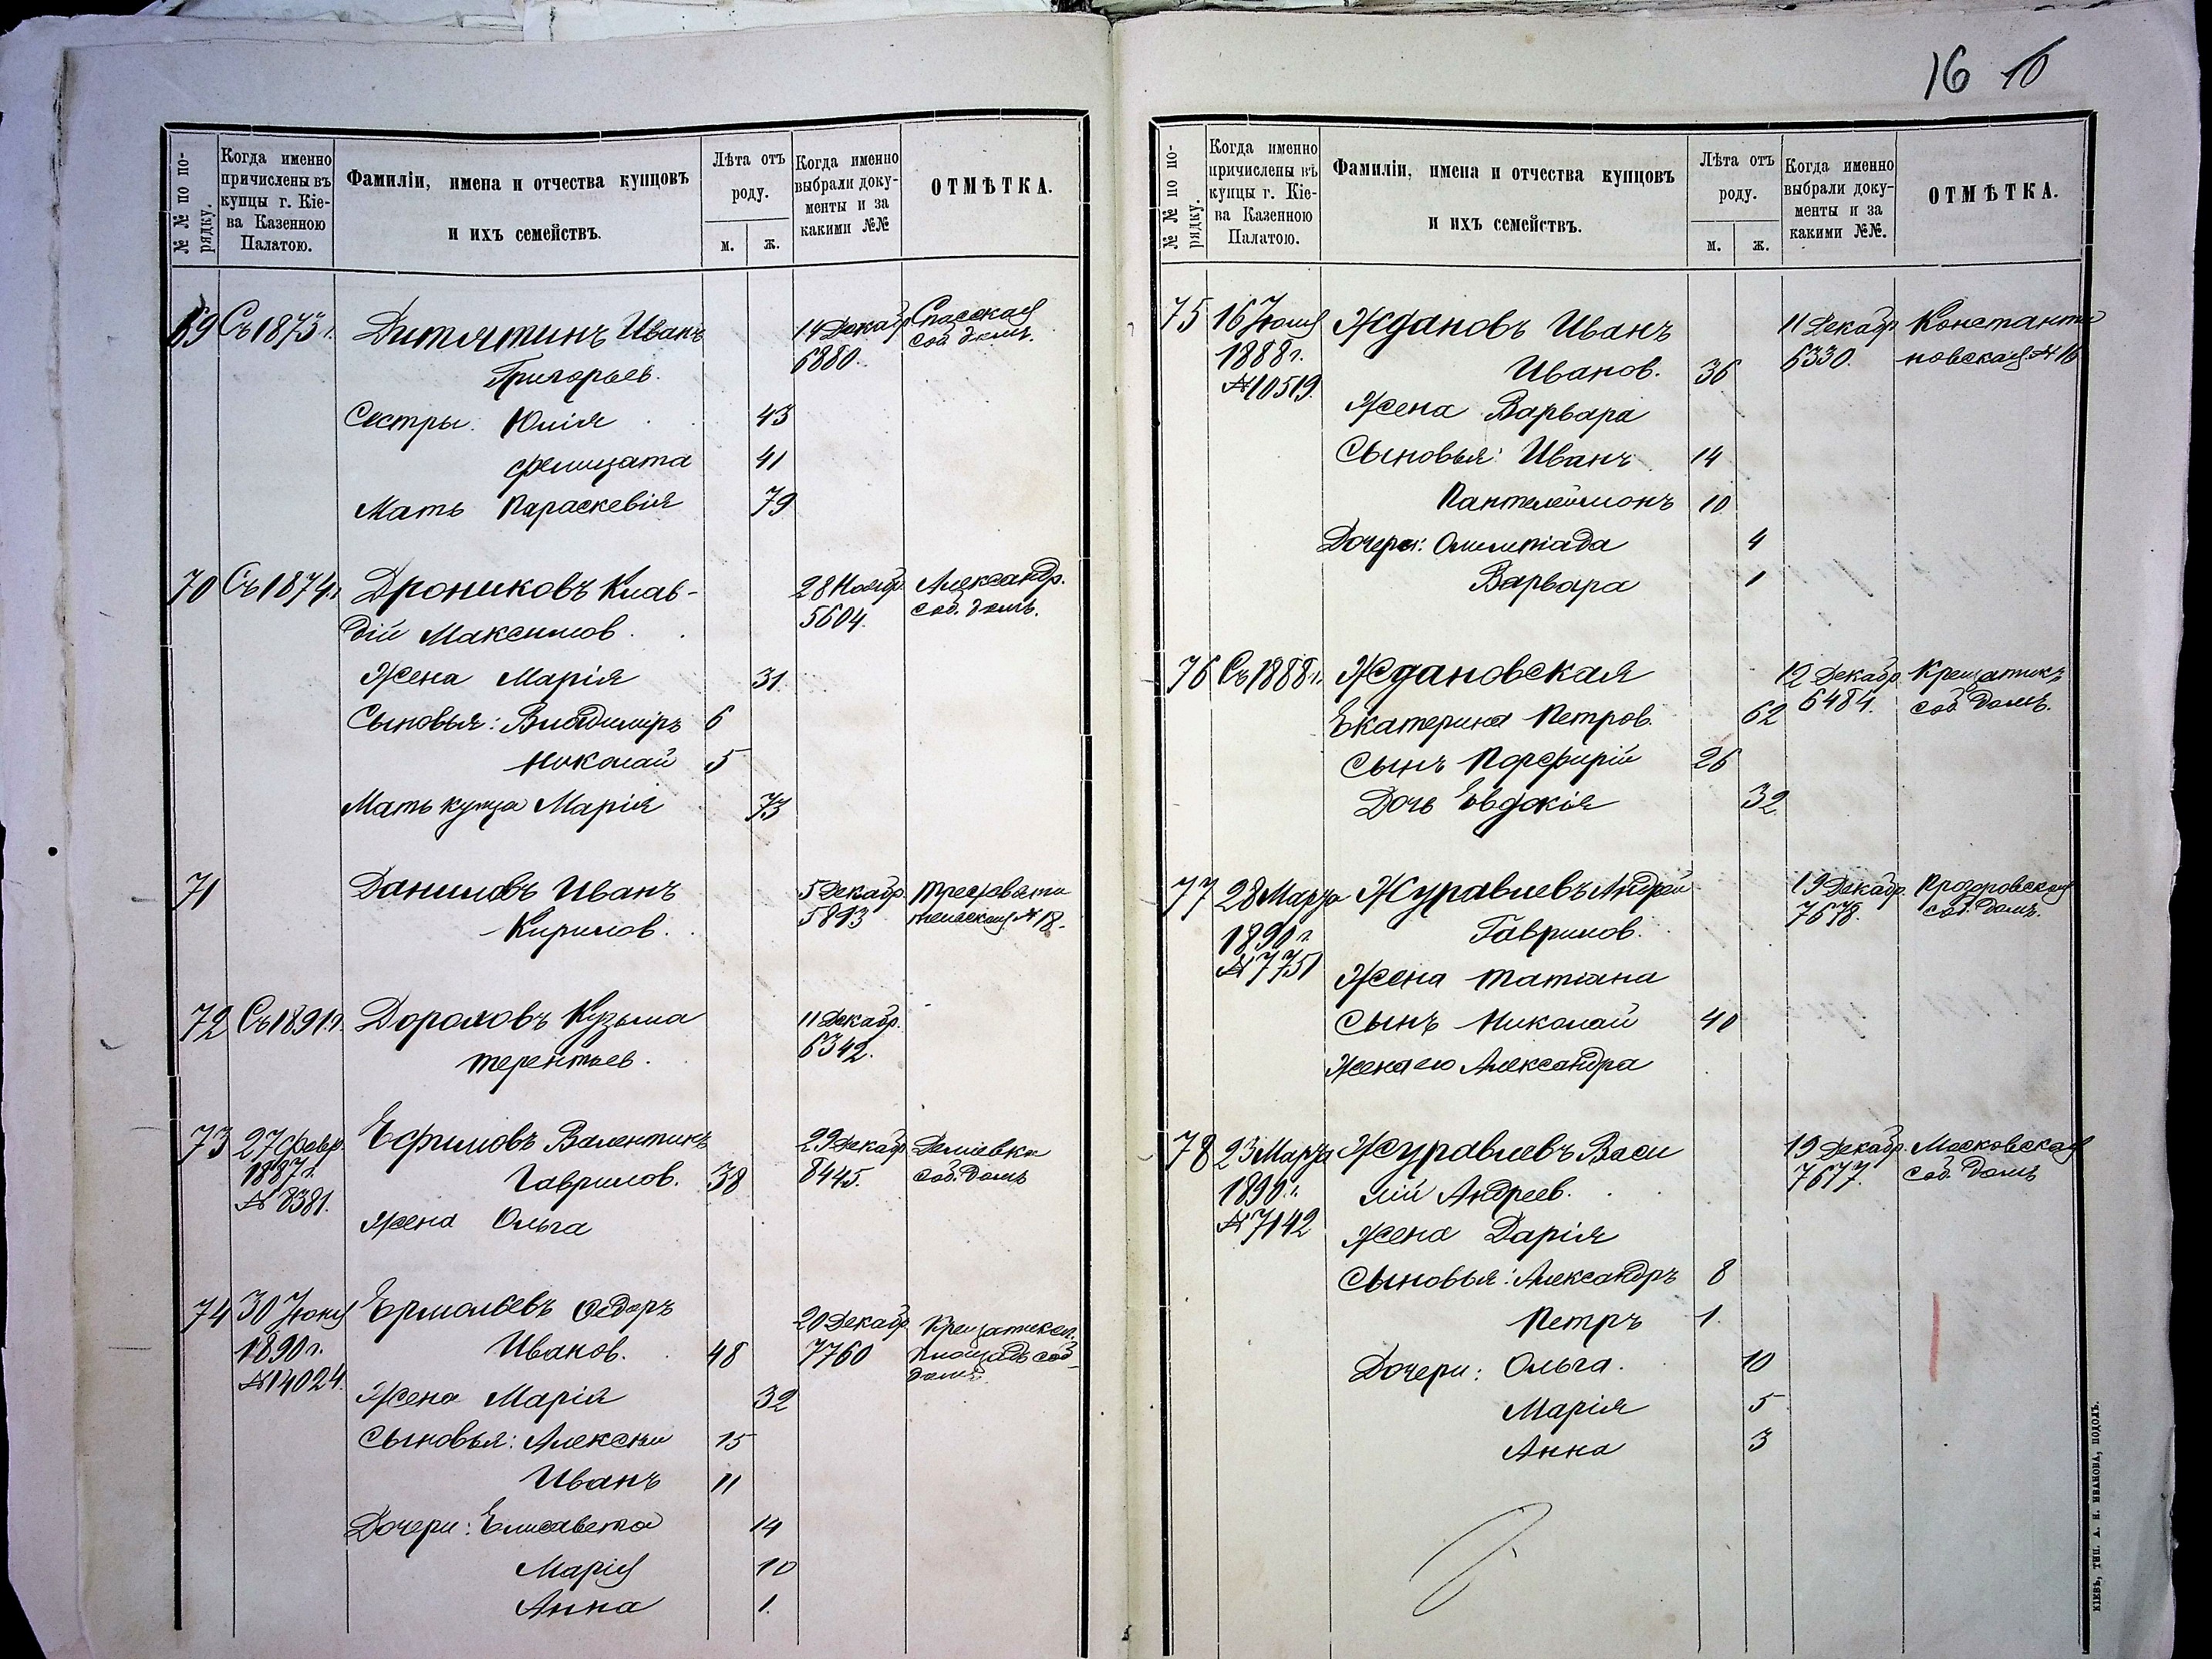 16 10
№ № по по-
рядку.
Когда именно
причислены въ
купцы г. Кіе-
ва Казенною
Палатою.
Фамиліи, имена и отчества купцовъ
и ихъ семействъ.
Лѣта отъ
роду.
м. ж.
Когда именно
выбрали доку-
менты и за
какими №№
ОТМѢТКА.
69 Съ 1873 г. Дитятинъ Иванъ 14 Декабр. Спасская
Григорьев. 6880. соб. домъ.
Сестры: Юлія 43
Фелицата 41
Мать Параскевія 79
70 Съ 1874 г. Дрониковъ Клав- 28 Ноябр. Александр.
дій Максимов. 5604. соб. домъ.
Жена Марія 31
Сыновья: Владиміръ 6
Николай 5
Мать купца Марія 73
71 Даниловъ Иванъ 5 Декабр. Трехсвяти
Кирилов. 5893 тельская № 18.
72 Съ 1891 г. Дороховъ Кузьма 11 Декабр.
Терентьев. 6342.
73 27 Февр. Ефимовъ Валентинъ 29 Декабр. Деміевка
1887 г. Гаврилов. 38 8445. соб. домъ
№ 8381. Жена Ольга
74 30 Іюня Ермольевъ Ѳедоръ 20 Декабр. Крещатикск.
1890 г. Иванов. 48 7760 площадь соб.
№ 14024. домъ.
Жена Марія 32
Сыновья: Алексѣй 15
Иванъ 11
Дочери: Елисавета 14
Марія 10
Анна 1.
№ № по по-
рядку.
Когда именно
причислены въ
купцы г. Кіе-
ва Казенною
Палатою.
Фамиліи, имена и отчества купцовъ
и ихъ семействъ.
Лѣта отъ
роду.
м. ж.
Когда именно
выбрали доку-
менты и за
какими №№.
ОТМѢТКА.
75 Ждановъ Иванъ 11 Декабр. Константи
1888 г. Иванов. 36 6330. новская № 16
№ 10519. Жена Варвара
Сыновья: Иванъ 14
Пантелеймонъ 10
Дочери: Олимпіада 4
Варвара 1
76 Съ 1888 г. Ждановская 12 Декабр. Крещатикъ
Екатерина Петров. 62 6484. соб. домъ.
Сынъ Порфирій 26
Дочь Евдокія 32
77 28 Марта Журавлевъ Андрей 19 Декабр. Прозоровская
1890 г. Гаврилов. 7678. соб. домъ.
№ 7751 Жена Татіана
Сынъ Николай 40
Жена его Александра
78 23 Марта Журавлевъ Васи 19 Декабр. Московская
1890 г. лій Андреев. 7677. соб. домъ
№ 7142 Жена Дарія
Сыновья: Александръ 8
Петръ 1.
Дочери: Ольга. 10
Марія 5
Анна 3
КІЕВЪ, ТИП. А. Н. ИВАНОВА, ПОДОЛЪ.